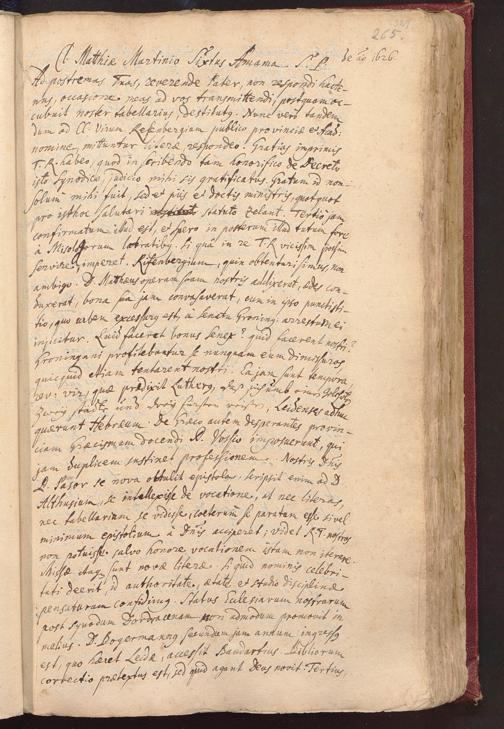 265.
Cl. Mathiæ Martinio Sixtus Amama S. P. de ao 1626
Ad postremas Tuas, reverende Pater, non respondi hacte-
nus, occasione meas ad vos transmittendi, postquam oc-
cubuit noster tabellarius, destitutus. Nunc vero tandem
dum ad Cl. Virum publico provinciæ et
nomine, mittuntur literæ, respondeo. Gratias imprimis
T. R. habeo, quod in scribendo tam honorifico de Decreto
isto Synodico judicio mihi sis gratificatus. Gratum id non
solum mihi fuit, sed et piis et doctis ministris, quotquot
pro isthoc salutari statuto zelant. Tertio jam
confirmatum illud est, et spero in posterum illud tutum fore
à latratibus. Si qua in re T. R. vicissim possim
servire, imperet. quin obtenturi simus non
ambigo. D. Matthæus operam suam nostris addixerat, ædes con-
duxerat, bona jam convasaverat, cum in ipso
tio, quo urbem excessurus est, à senatu Groning: arrestum ei
injicitur. Quid faceret bonus senex? quid facerent nostri?
Groningani profitebantur se nunquam eum dimissuros,
quicquid etiam tentarent nostri. Ea jam sunt tempora
quæ prædixit Lutherus,
zwoy städte und dröy fürsten Leidenses adhuc
quærunt Hebræum. De Græco autem desperantes provin-
ciam Græcismum docendi D. Vossio imposuerunt, qui
jam duplicem sustinet professionem. Nostris Dnis
D. Pasor se nova obtulit epistola, scripsit enim ad D.
Althusium, se intellexisse de vocatione, at nec literas,
nec tabellarium se vidisse, cæterum se paratum esse si vel
minimum epistolium à Dnis acciperet; videt R. T. nostros
non potuisse salvo honore vocationem istam non iterare.
Missæ itaque sunt novæ literæ. Si quid nominis celebri-
tati deerit, id authoritate, ætate et studio disciplinæ
pensaturum confidimus. Status Ecclesiarum nostrarum
post Synodum Dordracenam non admodum promovit in
melius. D. Bogermannus secundum jam annum ingressus
est, quo hæret Leidæ, accessit Baudartius. Bibliorum
correctio prætextus est, sed quid agant Deus novit. Tertius,